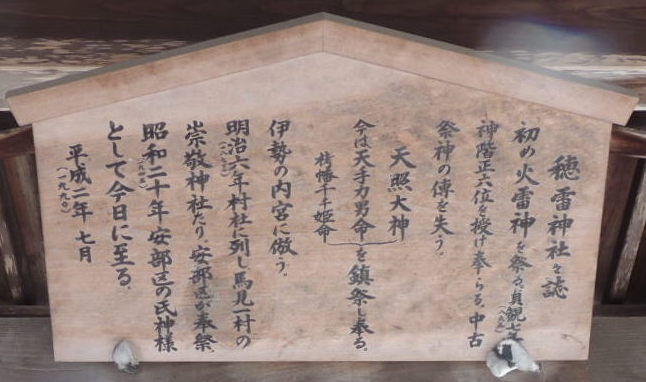 穂雷神社を誌
初め火雷神を祭る、貞観七年
神階正六位を授け奉らる、中古
祭神の傳を失う。
天照大神
今は天手力男命を鎮祭し奉る。
栲幡千千姫命
伊勢の内宮に倣う。
明治六年村社に列し馬見一村の
崇敬神社たり、安部区が奉祭、
昭和二十年安部区の氏神様
として今日に至る。
平成二年 七月
(一九九〇)